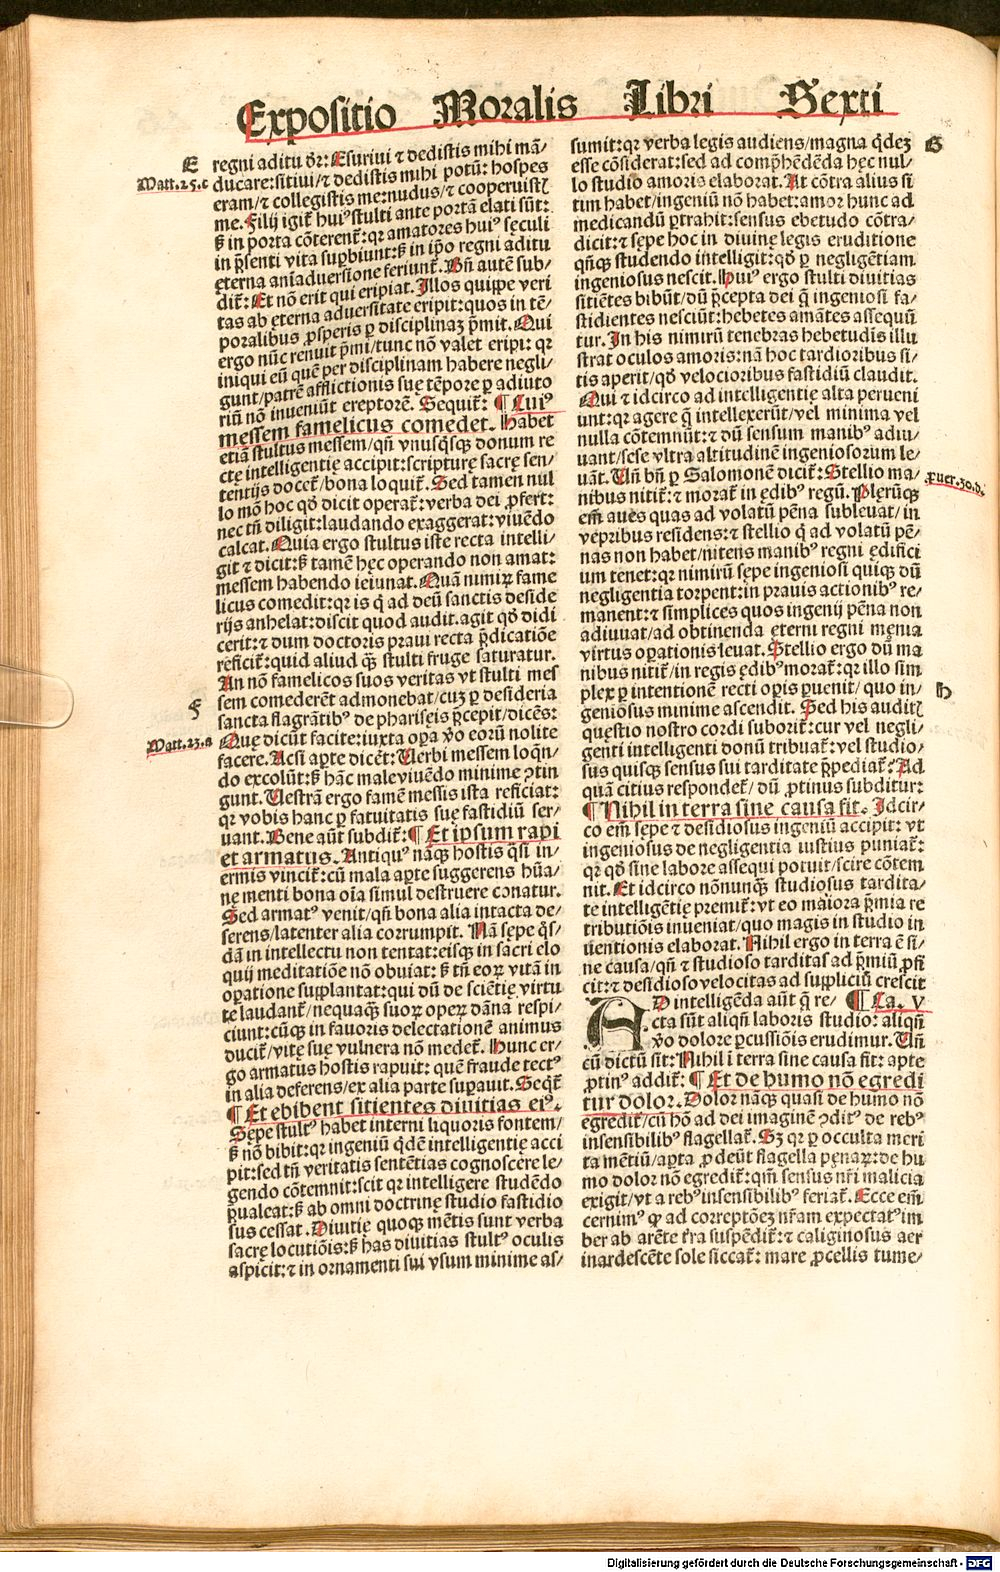 Expositio Moralis Libri Sexti
E
Matt.25.c
regni aditu dr̄: Esuriui ⁊ dedistis mihi mā/
ducare: sitiui/⁊ dedistis mihi potū: hospes
eram/⁊ collegistis me: nudus/⁊ cooperuistꝭ
me. Filij igit̄ huiꝰ stulti ante portā elati sūt:
ß in porta cōterent̄: qꝛ amatores huiꝰ sęculi
in p̄senti vita suꝑbiunt: ß in ip̄o regni aditu
ęterna anīaduersione feriunt̄. Bn̄ autē sub/
dit̄: Et nō erit qui eripiat. Illos quippe veri
tas ab ęterna aduersitate eripit: quos in tē/
poralibus ꝓsperis ꝑ disciplinaꝫ p̄mit. Qui
ergo nūc renuit p̄mi/tunc nō valet eripi: qꝛ
iniqui eū quē per disciplinam habere negli/
gunt/patrē afflictionis suę tēpore ꝑ adiuto
riū nō inueniūt ereptorē. Sequit̄: ¶ Cuiꝰ
messem famelicus comedet. Habet
etiā stultus messem/qn̄ vnusqͥsqꝫ donum re
ctę intelligentię accipit: scripturę sacrę sen/
tentijs docet̄/bona loquit̄. Sed tamen nul
lo mō hoc qd̄ dicit operat̄: verba dei ꝓfert:
nec tn̄ diligit: laudando exaggerat: viuēdo
calcat. Quia ergo stultus iste recta intelli/
git ⁊ dicit: ß tamē hęc operando non amat:
messem habendo ieiunat. Quā nimiꝝ fame
licus comedit: qꝛ is qͥ ad deū sanctis deside
rijs anhelat: discit quod audit. agit qd̄ didi
cerit: ⁊ dum doctoris praui recta p̄dicatiōe
reficit̄: quid aliud qꝫ̄ stulti fruge saturatur.
An nō famelicos suos veritas vt stulti mes
F
sem comederēt admonebat/cuꝫ ꝑ desideria
sancta flagrātibꝰ de pharisęis p̄cepit/dicēs:
Matt.23.a
Quę dicūt facite: iuxta oꝑa v̄o eorū nolite
facere. Acsi aꝑte dicēt: Verbi messem loqn̄/
do excolūt: ß hāc male viuēdo minime ↄtin
gunt. Vestrā ergo famē messis ista reficiat:
qꝛ vobis hanc ꝑ fatuitatis suę fastidiū ser/
uant. Bene aūt subdit̄: ¶ Et ipsum rapi
et armatus. Antiquꝰ nāqꝫ hostis qͣsi in/
ermis vincit̄: cū mala aꝑte suggerens hūa/
ne menti bona oīa simul destruere conatur.
Sed armatꝰ venit/qn̄ bona alia intacta de/
serens/latenter alia corrumpit. Nā sępe qͦs/
dā in intellectu non tentat: eisqꝫ in sacri elo
quij meditatiōe nō obuiat: ß tn̄ eoꝝ vitā in
oꝑatione supplantat: qui dū de sciētię virtu
te laudant̄/nequaqꝫ̄ suoꝝ operꝫ dāna respi/
ciunt: cūqꝫ in fauoris delectationē animus
ducit̄/vitę suę vulnera nō medet̄. Hunc er/
go armatus hostis rapuit: quē fraude tectꝰ
in alia deferens/ex alia parte suꝑauit. Seqͥt̄:
¶ Et ebibent sitientes diuitias eiꝰ.
Sępe stultꝰ habet interni liquoris fontem/
ß nō bibit: qꝛ ingeniū qͥdē intelligentię acci
pit: sed tn̄ veritatis sentētias cognoscere le/
gendo cōtemnit: scit qꝛ intelligere studēdo
p̄ualeat: ß ab omni doctrinę studio fastidio
sus cessat. Diuitię quoqꝫ mētis sunt verba
sacrę locutiōis: ß has diuitias stultꝰ oculis
aspicit: ⁊ in ornamenti sui vsum minime as/
sumit: qꝛ verba legis audiens/magna qͥdeꝫ
G
esse cōsiderat: sed ad comp̄hēdēda hęc nul/
lo studio amoris elaborat. At cōtra alius si
tim habet/ingeniū nō habet: amor hunc ad
medicandū ꝑtrahit: sensus ebetudo cōtra/
dicit: ⁊ sępe hoc in diuinę legis eruditione
qn̄qꝫ studendo intelligit: qd̄ ꝑ negligētiam
ingeniosus nescit. Huiꝰ ergo stulti diuitias
sitiētes bibūt/dū p̄cepta dei q̄ ingeniosi fa/
stidientes nesciūt: hebetes amātes assequū
tur. In his nimirū tenebras hebetudis illu
strat oculos amoris: nā hoc tardioribus si/
tis aperit/qd̄ velocioribus fastidiū claudit.
Qui ⁊ idcirco ad intelligentię alta perueni
unt: qꝛ agere q̄ intellexerūt/vel minima vel
nulla cōtemnūt: ⁊ dū sensum manibꝰ adiu/
uant/sese vltra altitudinē ingeniosorum le/
uāt. Vn̄ bn̄ ꝑ Salomonē dicit̄: Stellio ma/
ꝓuer.30.d.
nibus nitit̄: ⁊ morat̄ in ędibꝰ regū. Plęrūqꝫ
em̄ aues quas ad volatū pēna subleuat/in
vepribus residens: ⁊ stellio qͥ ad volatū pē/
nas non habet/nitens manibꝰ regni ędifici
um tenet: qꝛ nimirū sępe ingeniosi quiqꝫ dū
negligentia torpent: in prauis actionibꝰ re/
manent: ⁊ simplices quos ingenij pēna non
adiuuat/ad obtinenda ęterni regni męnia
virtus oꝑationis leuat. Stellio ergo dū ma
nibus nitit̄/in regis ędibꝰ morat̄: qꝛ illo sim
plex ꝑ intentionē recti oꝑis ꝑuenit/quo in/
H
geniosus minime ascendit. Sed his auditꝭ
quęstio nostro cordi suborit̄: cur vel negli/
genti intelligenti donū tribuat̄: vel studio/
sus quisqꝫ sensus sui tarditate p̄pediat̄: Ad
quā citius respondet̄/dū ꝓtinus subditur:
¶ Nihil in terra sine causa fit. Idcir/
co em̄ sępe ⁊ desidiosus ingeniū accipit: vt
ingeniosus de negligentia iustius puniat̄:
qꝛ qd̄ sine labore assequi potuit/scire cōtem
nit. Et idcirco nōnunqꝫ̄ studiosus tardita/
te intelligentię premit̄: vt eo maiora p̄mia re
tributiōis inueniat/quo magis in studio in
uentionis elaborat. Nihil ergo in terra ē si/
ne causa/qn̄ ⁊ studioso tarditas ad p̄miū ꝓfi
cit: ⁊ desidioso velocitas ad suppliciū crescit
AD intelligēda aūt q̄ re/ ¶ Ca. V
cta sūt aliqn̄ laboris studio: aliqn̄
v̄o dolore ꝑcussiōis erudimur. Vn̄
cū dictū sit: Nihil ī terra sine causa fit: apte
ꝓtinꝰ addit̄: ¶ Et de humo nō egredi
tur dolor. Dolor nāqꝫ quasi de humo nō
egredit̄/cū hō ad dei imaginē ↄditꝰ de rebꝰ
insensibilibꝰ flagellat̄. Sꝫ qꝛ ꝑ occulta meri
ta mētiū/aꝑta ꝓdeūt flagella pęnaꝝ: de hu
mo dolor nō egredit̄: qm̄ sensus nr̄i malicia
exigit/vt a rebꝰ insensibilibꝰ feriat̄. Ecce em̄
cernimꝰ ꝙ ad correptōeꝫ nr̄am expectatꝰ im
ber ab arēte tr̄ra suspēdit̄: ⁊ caliginosus aer
inardescēte sole siccat̄: mare ꝓcellis tume/
Digitalisierung gefördert durch die Deutsche Forschungsgemeinschaft - DFG